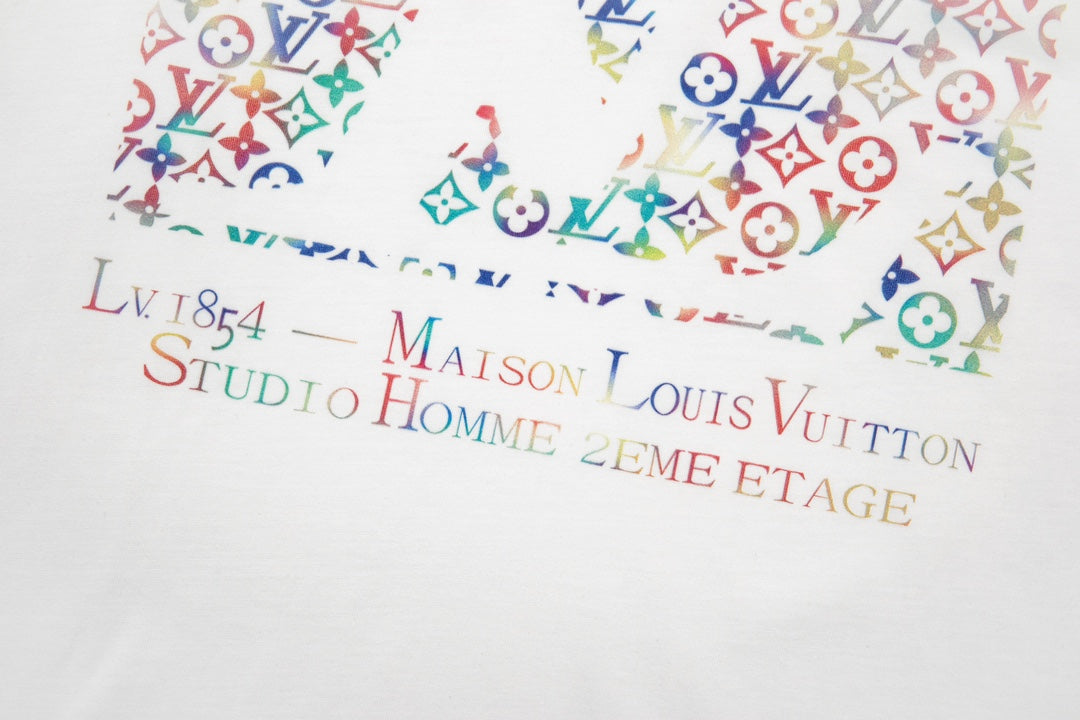 LV. 1854 — MAISON LOUIS VUITTON
STUDIO HOMME 2EME ETAGE